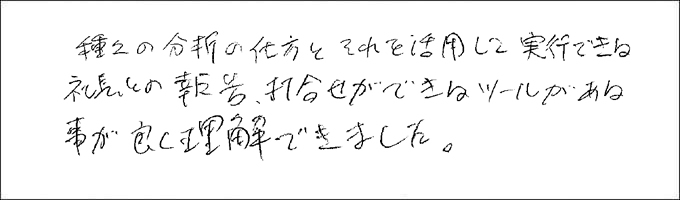 種々の分析の仕方とそれを活用して実行できる
社長との報告、打合せができるツールがある
事が良く理解できました。